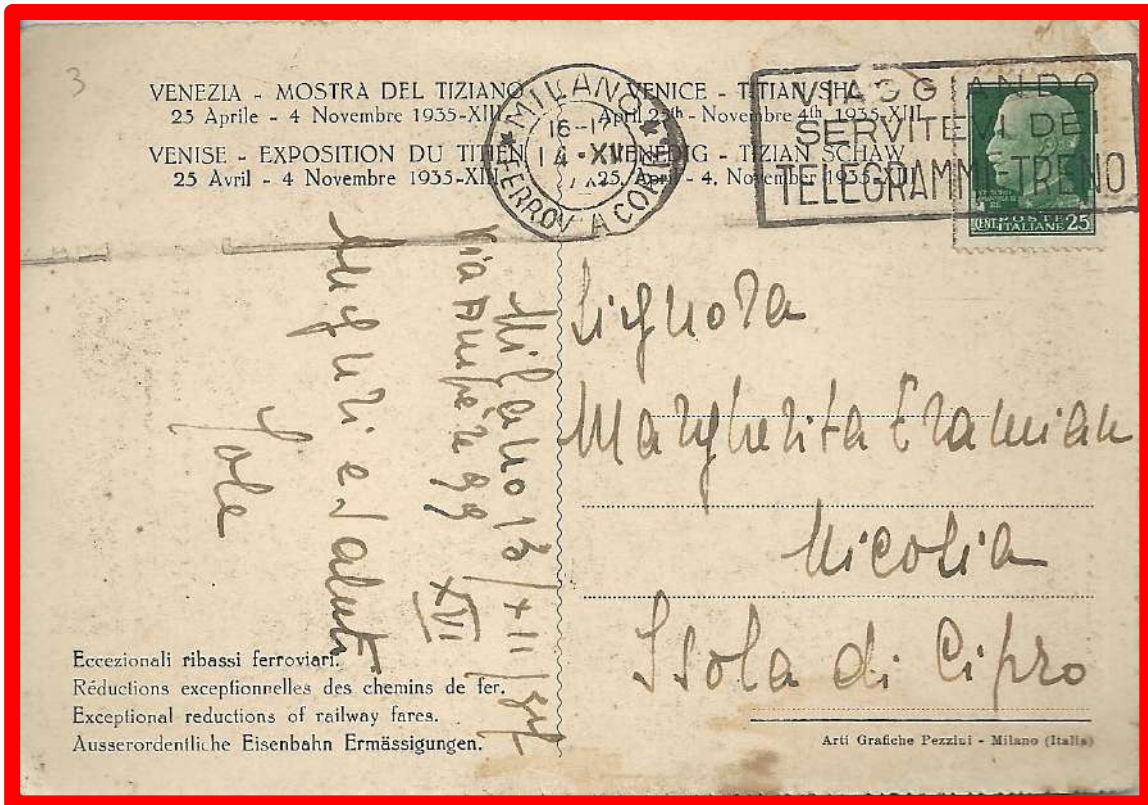 3
VENEZIA - MOSTRA DEL TIZIANO
25 Aprile - 4 Novembre 1935-XIII.
VENISE - EXPOSITION DU TITIEN
25 Avril - 4 Novembre 1935-XIII
VENICE - TITIAN SHAW
April 25th - November 4th 1935-XIII
VENEDIG - TIZIAN SCHAW
25. April - 4. November 1935-XIII
MILANO
16-17
14 • XII
FERROVIA CORR
VIAGGIANDO
SERVITEVI DEI
TELEGRAMMI-TRENO
CENT. POSTE ITALIANE 25
Milano 13/XII/37
Via Ampère 99 XVI
Auguri e saluti
Jole
Signora
Margherita Eramian
Nicosia
Isola di Cipro
Eccezionali ribassi ferroviari.
Réductions exceptionnelles des chemins de fer.
Exceptional reductions of railway fares.
Ausserordentliche Eisenbahn Ermässigungen.
Arti Grafiche Pezzini - Milano (Italia)